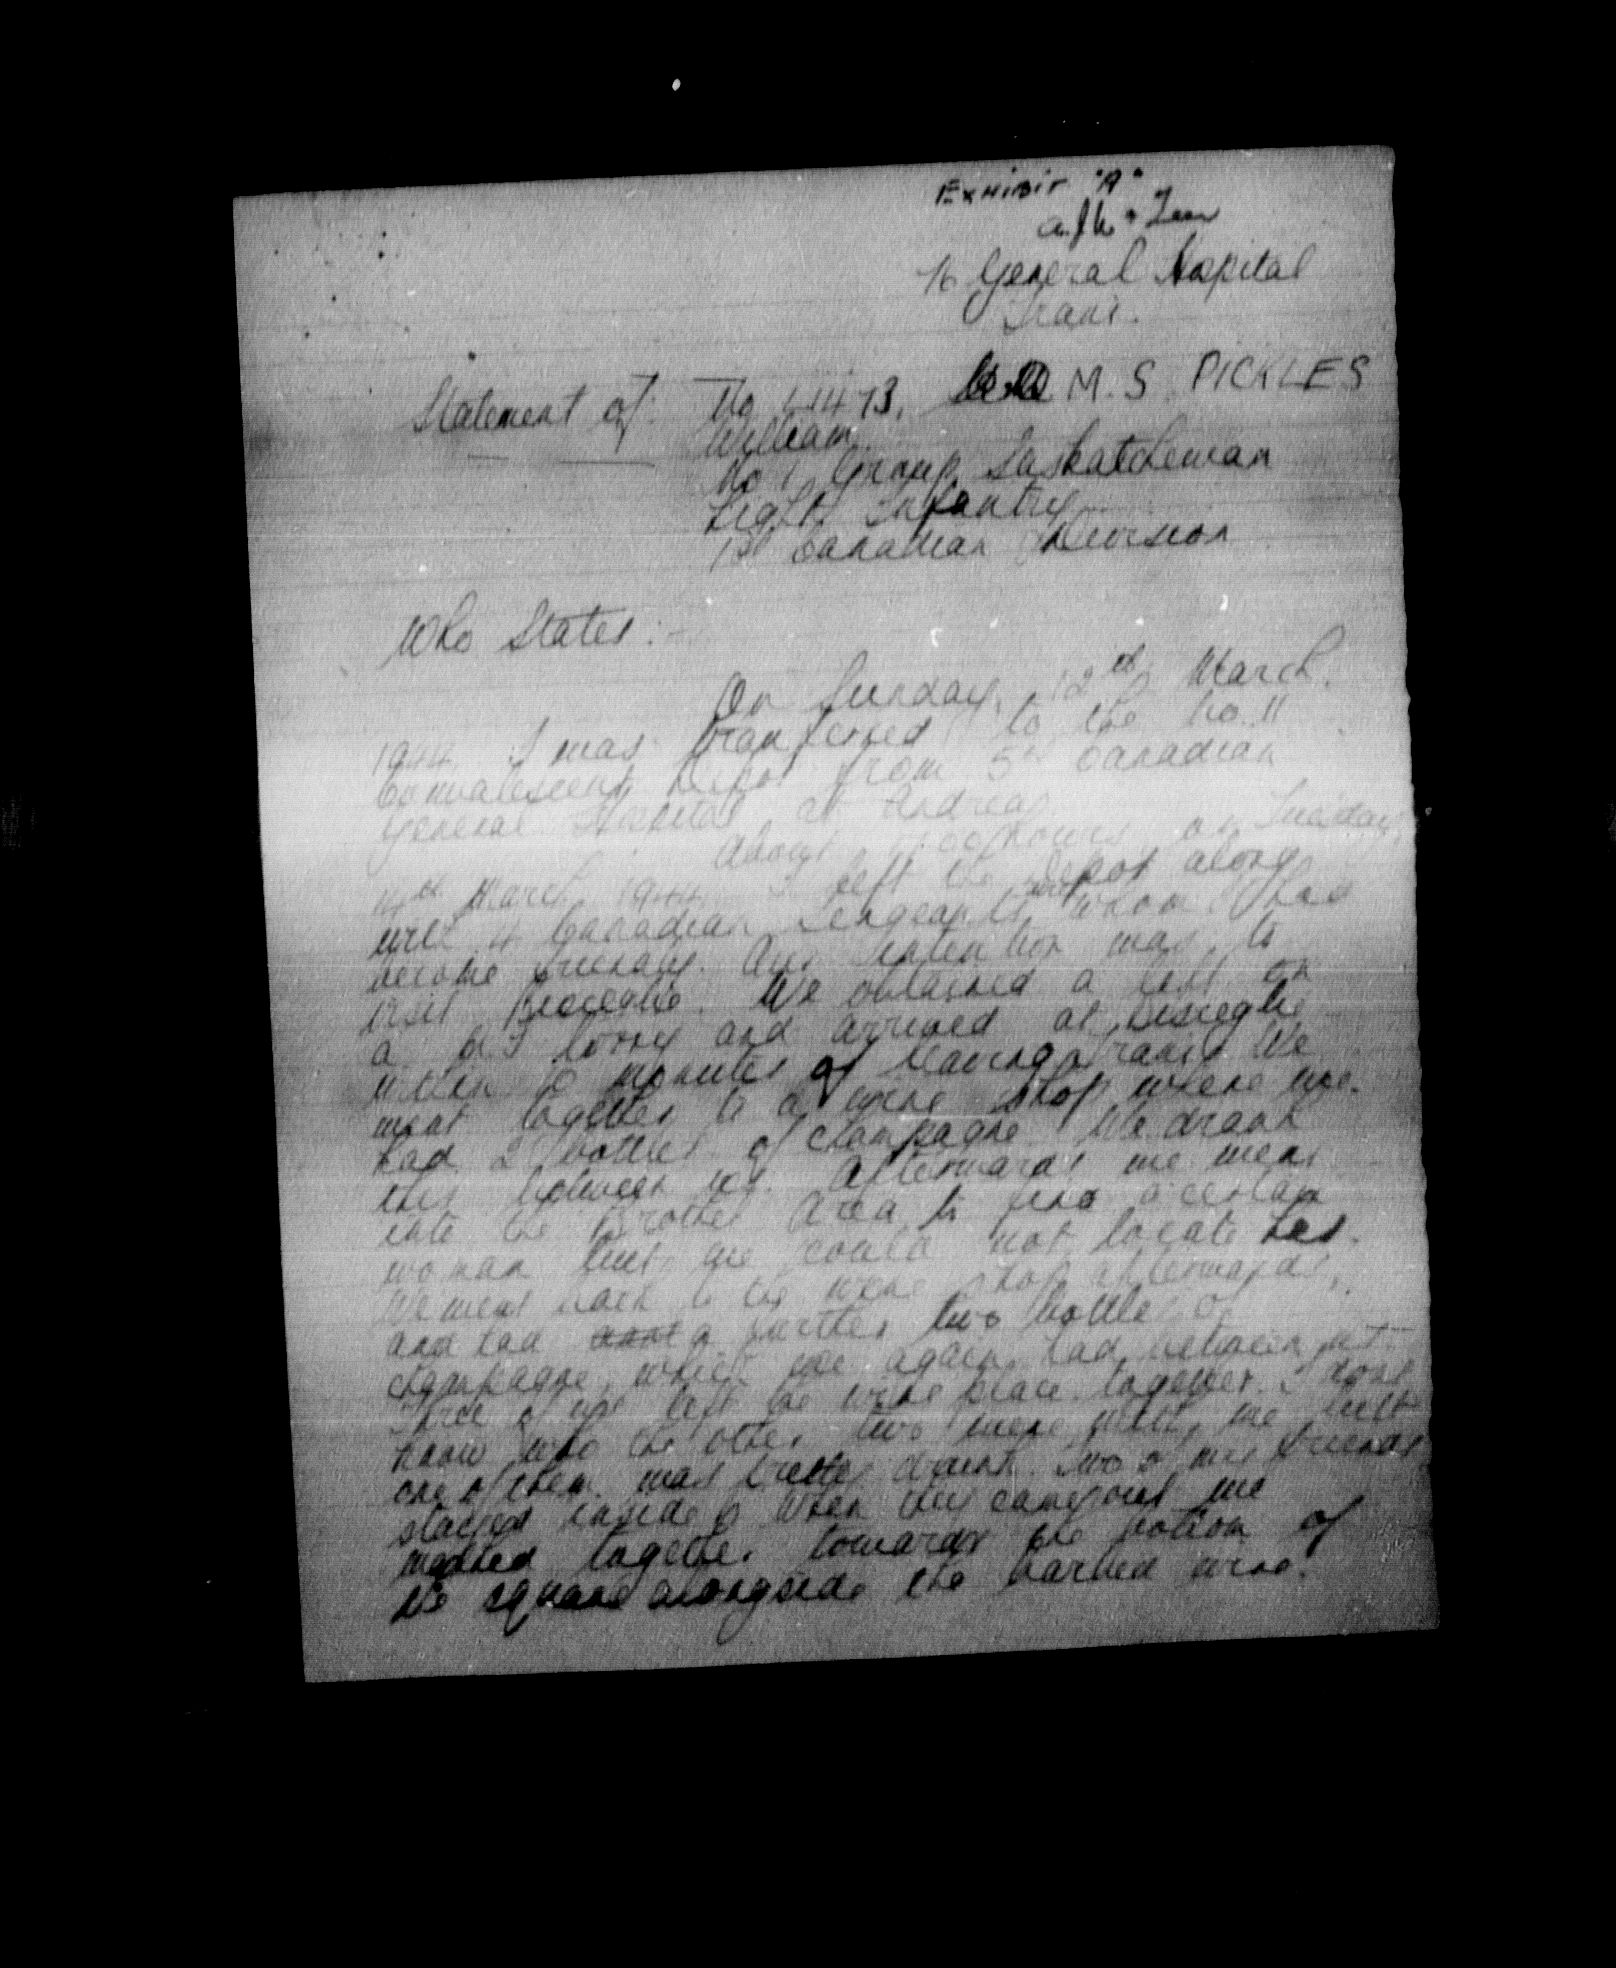 Exhibit "A"
16 General Hospital
Trani.
Statement of: No L 1473, M.S. PICKLES
William
No 1 Group Saskatchewan
Light Infantry
1st Canadian Division
Who States:-
On Sunday, 12th March.
1944 I was transferred to the No. 11
Convalescent Depot from 5th Canadian
General Hospital at Andrea.
About hours on Tuesday,
14th March 1944 I left the Depot along
with 4 Canadian Sergeants whom I had
become friendly. Our intention was to
visit Bisceglie. We obtained a lift on
a lorry and arrived at Bisceglie
within 10 minutes of leaving Trani. We
went together to a wine shop where we
had 2 bottles of champagne. We drank
this between us. Afterwards we went
into the Brothel Area to find a certain
woman but we could not locate her.
We went back to the wine shop afterwards,
and had a further two bottles of
champagne which we again had between us.
Three of us left the wine place together. I dont
know who the other two were with me but
one of them was pretty drunk. Two of my friends
stayed inside when they came out we
walked together towards the bottom of
the square alongside the barbed wire.